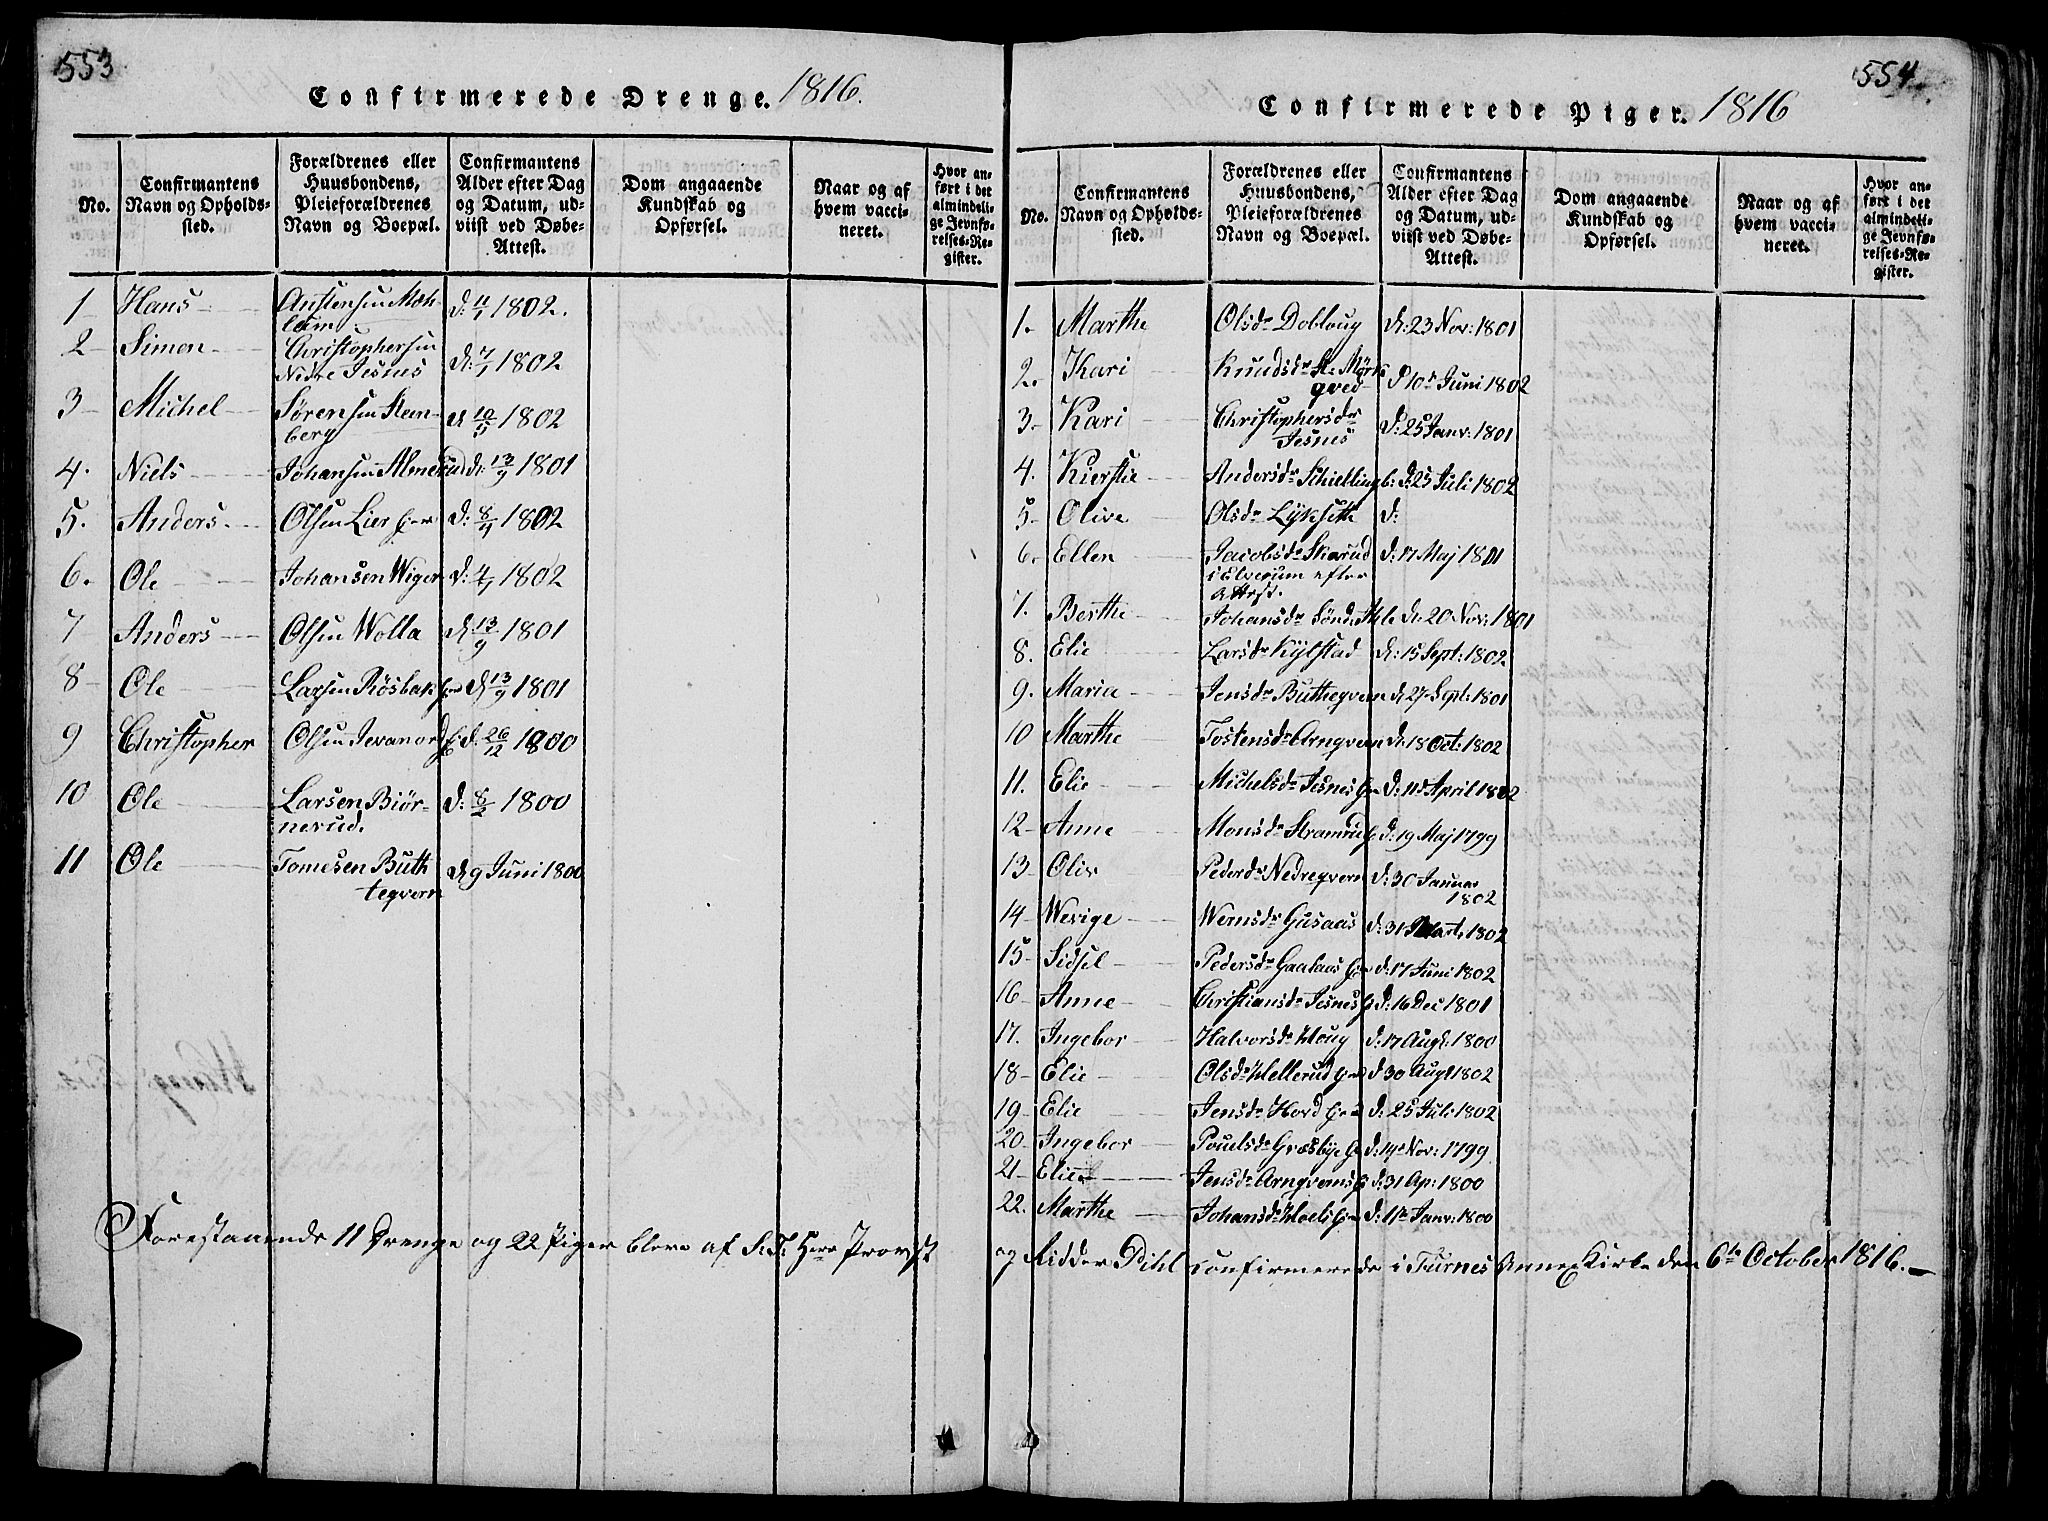 553
Confirmerede Drenge. 1816.
No.
Confirmantens Navn og Opholds-sted.
Forældrenes eller Huusbondens, Pleieforældrenes Navn og Boepæl.
Confirmantens Alder efter Dag og Datum, ud-viist ved Døbe-Attest.
Dom angaaende Kundskab og Opførsel.
Naar og af hvem vacci-neret.
Hvor an-ført i det almindeli-ge Jevnfø-relses-Re-gister.
1 Hans Anstensen Moh- d: 11/1 1802.
lum
2 Simen Christophersen
Nedre Jesnes d: 7/1 1802
3 Michel Sørensen Sten- d 10/5 1802
berg
4. Niels Johansen Almerud d: 13/9 1801
5. Anders Olsen Lier Eier d: 8/4 1802
6. Ole Johansen Wiger d: 4/1 1802
7 Anders Olsen Wolla d: 13/9 1801
8 Ole Larsen Røsbak d 13/9 1801
9 Christopher Olsen Jevanord d: 26/12 1800
10 Ole Larsen Biør- d: 8/2 1800
nerud.
11 Ole Tomesen Buth d 9 Juni 1800
teqvern
Forestaaende 11 Drenge og 22 Piger bleve af S: T: Herr Provst
554
Confirmerede Piger. 1816
No.
Confirmantens Navn og Opholds-sted.
Forældrenes eller Huusbondens, Pleieforældrenes Navn og Boepæl.
Confirmantens Alder efter Dag og Datum, ud-viist ved Døbe-Attest.
Dom angaaende Kundskab og Opførsel.
Naar og af hvem vacci-neret.
Hvor an-ført i det almindeli-ge Jevnfø-relses-Re-gister.
1. Marthe Olsdr Dobloug d: 23 Nov: 1801
2. Kari Knudsdr St. Mørk
qved d 10de Juni 1802
3. Kari Christophersdr
Jesnes d: 25 Janv: 1801
4. Kierstie Andersdr Schielling b. d: 25 Juli 1802
5 Olive Olsdr Lyksett d:
6. Ellen Jacobsdr Skarud d: 17 Maj 1801
i Elverum efter
attest.
7. Berthe Johansdr Sønd. Able d: 20 Nov: 1801
8. Elie Larsdr Kylstad d: 15 Sept: 1802
9. Maria Jensdr Butheqvern d 27 Sept: 1801
10 Marthe Tostensdr Arnqvern d: 18 Oct: 1802
11. Elie Michelsdr Jesnes d: 11te April 1802
12 Anne Monsdr d: 19 Maj 1799
13 Oliv Pedersdr Nedreqvern d: 30 Januar
1802
14 Wevige Wernsdr Gusaas d: 31 Mart. 1802
15 Sidsel Pedersdr Gaalaas d: 17 Juni 1802
16 Anne Christiansdr Jesnes d: 16 Dec 1801
17. Ingebor Halvorsdr d: 17 Augt: 1800
18 Elie Olsdr d 30 Augt 1802
19 Elie Jensdr Hord d: 25 Juli 1802
20 Ingebor Poulsdr Græsbye d: 14 Nov: 1799
21 Elie Jensdr Arnqverns d: 31 Ap: 1800
22. Marthe Johansdr d: 11te Janv: 1800
og Ridder Pihl confirmerede i Furnes Annex Kirke den 6te October 1816.